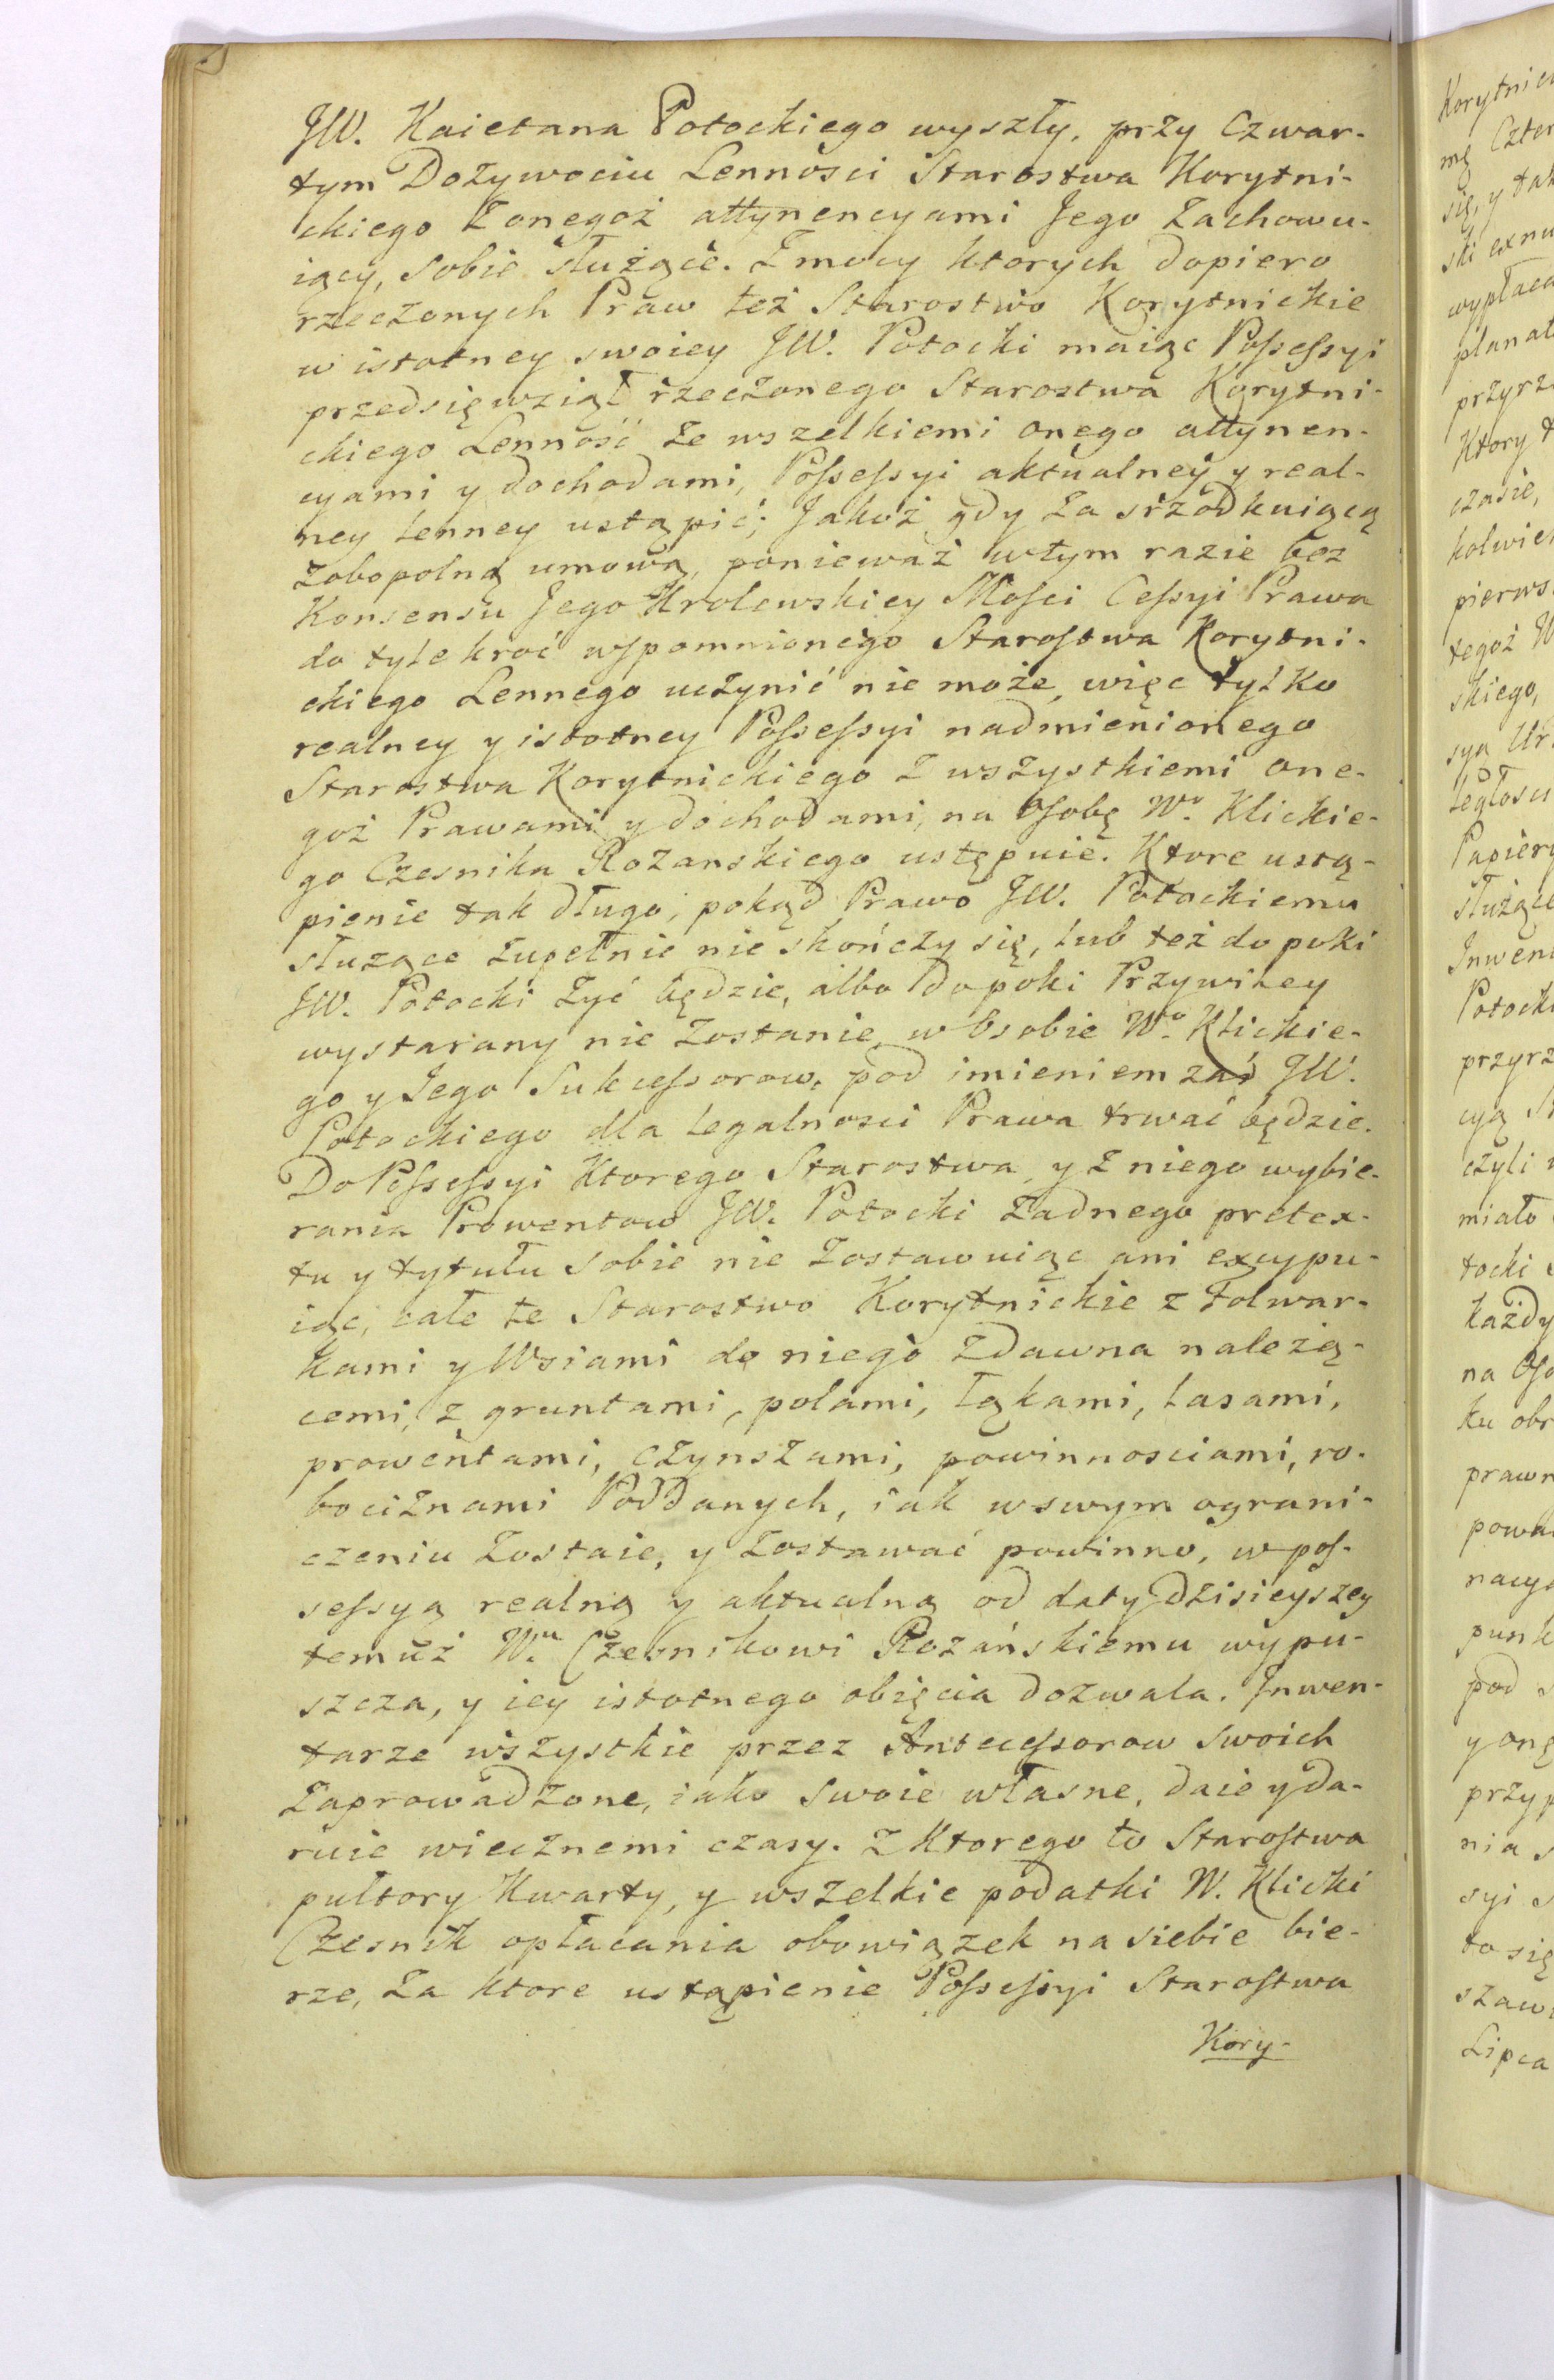 JW. Kaietana Potockiego wyszły, przy czwar-
tym Dożywociu Lennosci Starostwa Korytni-
ckiego Z onegoż attynencyami Jego Zachowu-
iący, Sobie służące. Z mocy ktorych dopiero
rzeczonych Praw też Starostwo Korytnickie
w istotney swoiey JW. Potocki maiąc Possessyi
przedsięwziął rzeczonego Starostwa Korytni-
ckiego Lenność Ze wszelkiemi onego attynen-
cyami y dochodami, Possessyi aktualney y real-
ney lenney ustąpić; Jakoż gdy Za srżodkuiącą
Zobopolną umową, ponieważ w tym razie bez
Konsensu Jego Krolewskiey Mosci Cessyi Prawa
do tyle kroć wspomnionego Starostwa Korytni-
ckiego Lennego uczynić nie może, więc tylko
realney y istotney Possessyi nadmienionego
Starostwa Korytnickiego Z wszystkiemi one-
goż Prawami y dochodami, na Osobę Wo. Klickie-
go Czesnika Rozanskiego ustępuie. Ktore ustą-
pienie tak długo, pokąd Prawo JW. Potockiemu
służące Zupełnie nie skończy się, lub też do poki
JW. Potocki Zyć będzie, albo dopoki Przywiley
wystarany nie Zostanie, w Osobie Wo. Klickie-
go y Jego Sukcessorow, pod imieniem zaś JW.
Potockiego dla legalnosci Prawa trwać będzie.
Do Possessyi Ktorego Starostwa y Z niego wybie-
rania Prowentow JW. Potocki Zadnego pretex-
tu y tytułu Sobie nie Zostawuiąc ani excypu-
iąc, całe te Starostwo Korytnickie z folwar-
kami y Wsiami do niego Zdawna należą-
cemi, z gruntami, polami, łąkami, lasami,
prowentami, czynszami, powinnosciami, ro-
bociznami Poddanych, iak w swym ograni-
czeniu Zostaie, y Zostawać powinno, w pos-
sessyą realną y aktualną od daty dzisieyszey
temuż Wu. Czesnikowi Rozańskiemu wypu-
szcza, y iey istotnego obięcia dozwala. Inwen-
tarze wszystkie przez Antecessorow Swoich
Zaprowadzone, iako Swoie własne, daie y da-
ruie wiecznemi czasy. Z Ktorego to Starostwa
pułtory Kwarty, y wszelkie podatki W. Klicki
Czesnik opłacania obowiązek na siebie bie-
rze, Za ktore ustąpienie Possessyi Starostwa
Kory-